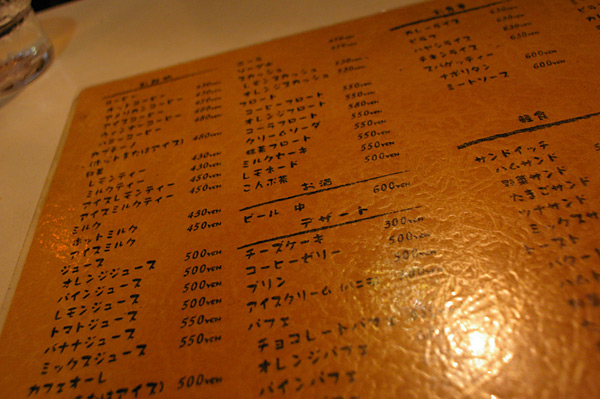 お飲物
コーヒー 430YEN
ホットコーヒー 430YEN
アメリカンコーヒー 450YEN
アイスコーヒー 450YEN
ウィンナーコーヒー 480YEN
バニーコーヒー
カプチーノ 480YEN
(ホットまたはアイス)
紅茶 430YEN
レモンティー 450YEN
ミルクティー 450YEN
アイスレモンティー
アイスミルクティー
ミルク 430YEN
ホットミルク 450YEN
アイスミルク
ジュース 500YEN
オレンジジュース 500YEN
パインジュース 500YEN
レモンジュース 500YEN
トマトジュース 550YEN
バナナジュース 550YEN
ミックスジュース
カフェオーレ 500YEN
(またはアイス)
コーラ
ソーダ水
スカッシュ
レモンスカッシュ 550YEN
オレンジスカッシュ 550YEN
フロート
コーヒーフロート 580YEN
オレンジフロート 580YEN
コーラフロート 550YEN
クリームソーダ 550YEN
紅茶フロート 550YEN
ミルクセーキ 550YEN
レモネード 500YEN
こんぶ茶
お酒
ビール 中 600YEN
デザート
チーズケーキ 300YEN
コーヒーゼリー 500YEN
プリン 500YEN
アイスクリーム (バニラ)
パフェ
チョコレートパフェ
オレンジパフェ
パインパフェ
お食事
カレーライス 630YEN
ピラフ 630YEN
ハヤシライス 630YEN
チキンライス
スパゲッティー
ナポリタン 600YEN
ミートソース 600YEN
軽食
サンドイッチ
ハムサンド
野菜サンド
たまごサンド
ツナサンド
ミックスサン
トースト
バター